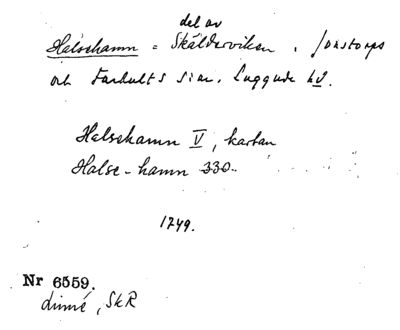 del av
Halsehamn = Skälderviken, Jonstorps
och Farhults s:ar. Luggude hd.
Halsehamn V, kartan
Halse-hamn 330
1749.
Nr 6559.
Linné, SkR